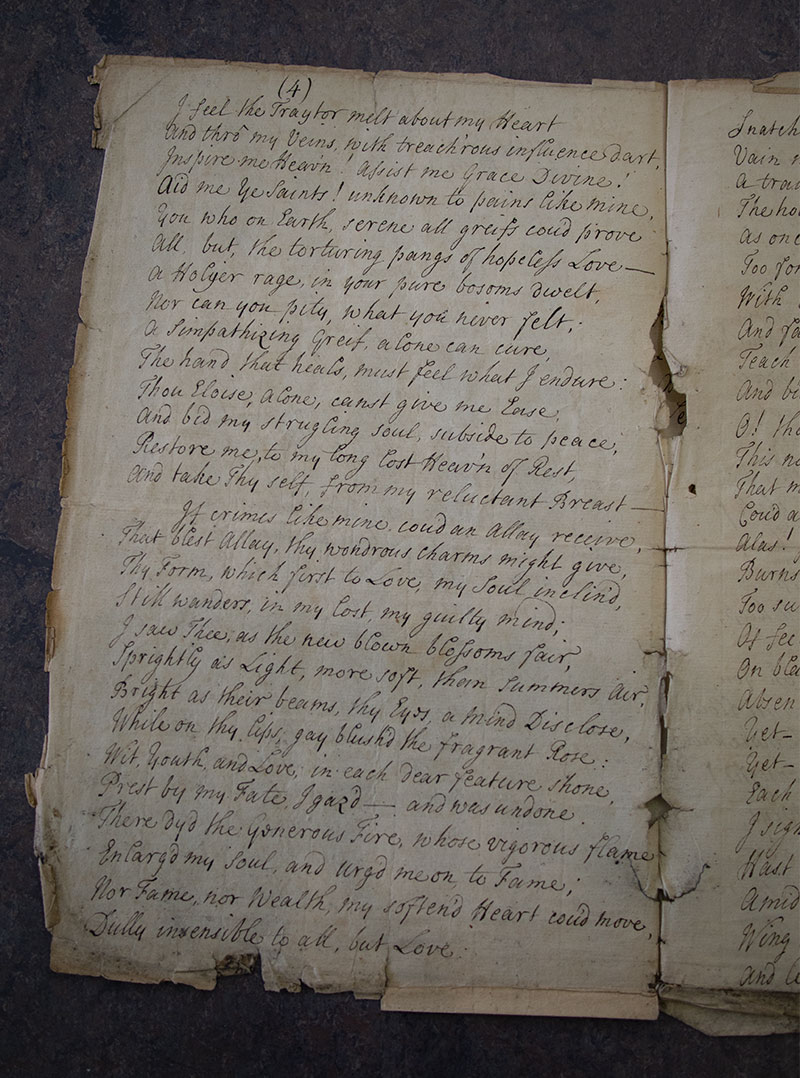 (4)
I feel the Traytor melt about my Heart
And thrõ my Veins, with treach'rous influence dart,
Inspire me Heav'n! Assist me Grace Divine!
Aid me Ye Saints! unknown to pains like mine,
You who on Earth, serene all greifs cou'd prove
All, but, the torturing pangs of hopeless Love—
A Holyer rage, in your pure bosoms dwelt,
Nor can you pity, what you never felt;
A Simpathizing Greif, alone can cure,
The hand that heals, must feel what I endure:
Thou Eloise, alone, canst give me Ease,
And bid my strugling soul, subside to peace,
Restore me, to my long lost Heav'n of Rest,
And take Thy self, from my reluctant Breast—
If crimes like mine coud an Allay receive,
That blest Allay, thy wondrous charms might give,
Thy Form, which first to Love, my Soul inclin'd,
Still wanders, in my lost, my guilty mind;
I saw Thee, as the new blown blossoms fair,
Sprightly as Light, more soft, than Summers Air,
Bright as their beams, thy Eyes, a Mind Disclose,
While on thy lips, gay blush'd the fragrant Rose:
Wit, Youth, and Love, in each dear feature shone,
Prest by my Fate, I gaz'd— and was undone.
There dy'd the Generous Fire, whose vigorous flame
Enlarg'd my Soul, and urg'd me on, to Fame;
Nor Fame, nor Wealth, my soften'd Heart cou'd move,
Dully insensible to all, but Love
Snatch
Vain
A
The
As
Too
With
And
Teach
And
O!
This
That
Coud
Alas!
Burns
Too
Of
On
Absen
Yet—
Yet—
Each
I sigh
Hast
Amid
Wing
And